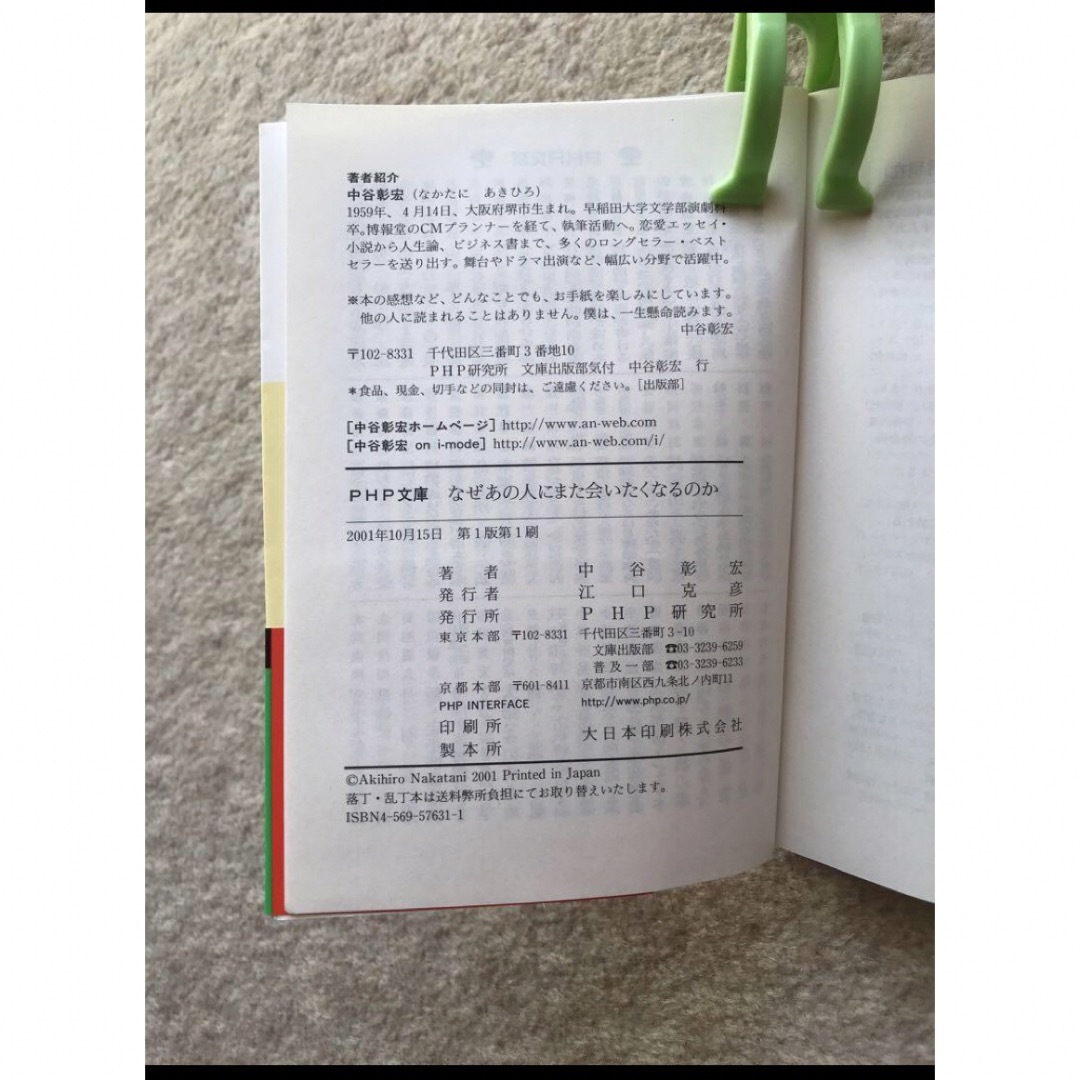 著者紹介
中谷彰宏(なかたに　あきひろ)
1959年、4月14日、大阪府堺市生まれ。早稲田大学文学部演劇科
卒。博報堂のCMプランナーを経て、執筆活動へ。恋愛エッセイ・
小説から人生論、ビジネス書まで、多くのロングセラー・ベスト
セラーを送り出す。舞台やドラマ出演など、幅広い分野で活躍中。
※本の感想など、どんなことでも、お手紙を楽しみにしています。
他の人に読まれることはありません。僕は、一生懸命読みます。
中谷彰宏
〒102-8331　千代田区三番町3番地10
PHP研究所　文庫出版部気付　中谷彰宏　行
＊食品、現金、切手などの同封は、ご遠慮ください。[出版部]
[中谷彰宏ホームページ] http://www.an-web.com
[中谷彰宏 on i-mode] http://www.an-web.com/i/
PHP文庫　なぜあの人にまた会いたくなるのか
2001年10月15日　第1版第1刷
著者　中谷彰宏
発行者　江口克彦
発行所　PHP研究所
東京本部　〒102-8331　千代田区三番町3-10
文庫出版部　☎03-3239-6259
普及一部　☎03-3239-6233
京都本部　〒601-8411　京都市南区西九条北ノ内町11
PHP INTERFACE　http://www.php.co.jp/
印刷所
大日本印刷株式会社
製本所
©Akihiro Nakatani 2001 Printed in Japan
落丁・乱丁本は送料弊所負担にてお取り替えいたします。
ISBN4-569-57631-1